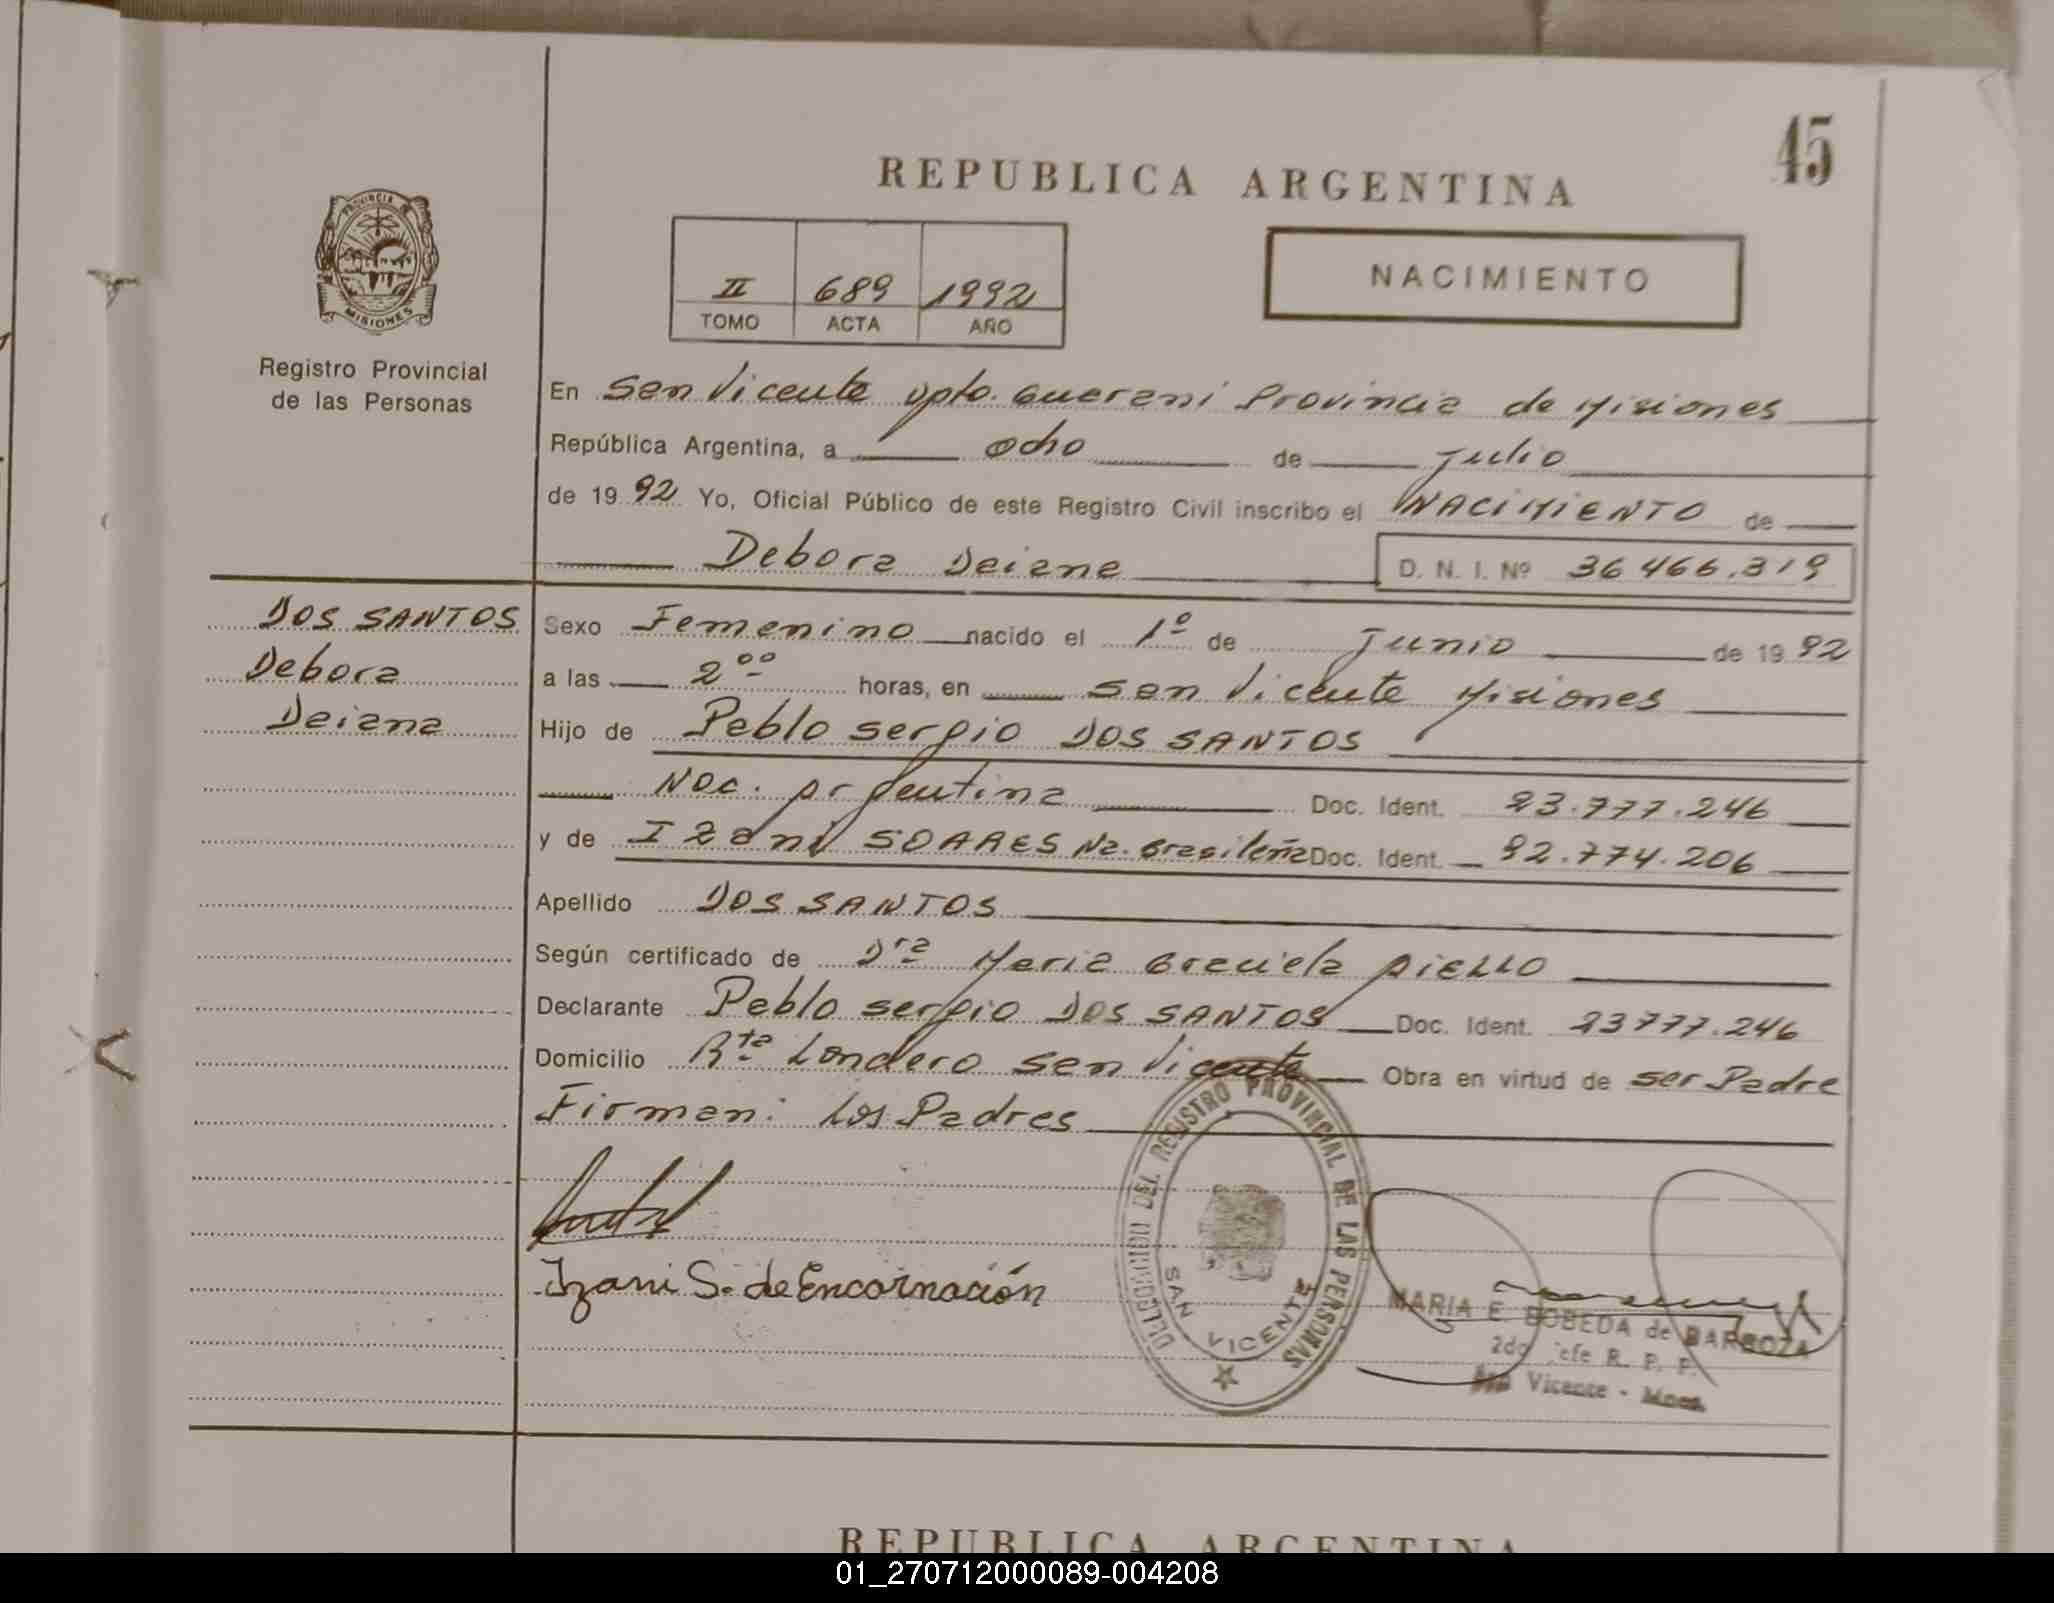 45
REPUBLICA ARGENTINA
PROVINCIA DE
MISIONES
Registro Provincial
de las Personas
II 689 1992
TOMO ACTA AÑO
NACIMIENTO
En San Vicente Dpto. Guarani Provincia de Misiones
República Argentina, a ocho de julio
de 1992 Yo, Oficial Público de este Registro Civil inscribo el NACIMIENTO de
Debora Daiana D. N. I. Nº 36 466.319
DOS SANTOS
Debora
Daiana
Sexo Femenino nacido el 1º de Junio de 1992
a las 2 00 horas, en San Vicente Misiones
Hijo de Pablo Sergio DOS SANTOS
Nac. Argentina Doc. Ident. 23.777.246
y de Izani SOARES Na. Brasileña Doc. Ident. 92.774.206
Apellido DOS SANTOS
Según certificado de Dra Maria Graciela AIELLO
Declarante Pablo Sergio DOS SANTOS Doc. Ident. 23777.246
Domicilio Rta Londero San Vicente Obra en virtud de ser Padre
Firman: Los Padres
Izani S. de Encarnación
DELEGACION DEL REGISTRO PROVINCIAL DE LAS PERSONAS
SAN VICENTE
MARIA E. BOBEDA de BARBOZA
2do Jefe R. P. P.
San Vicente - Mnes.
REPUBLICA ARGENTINA
01_270712000089-004208